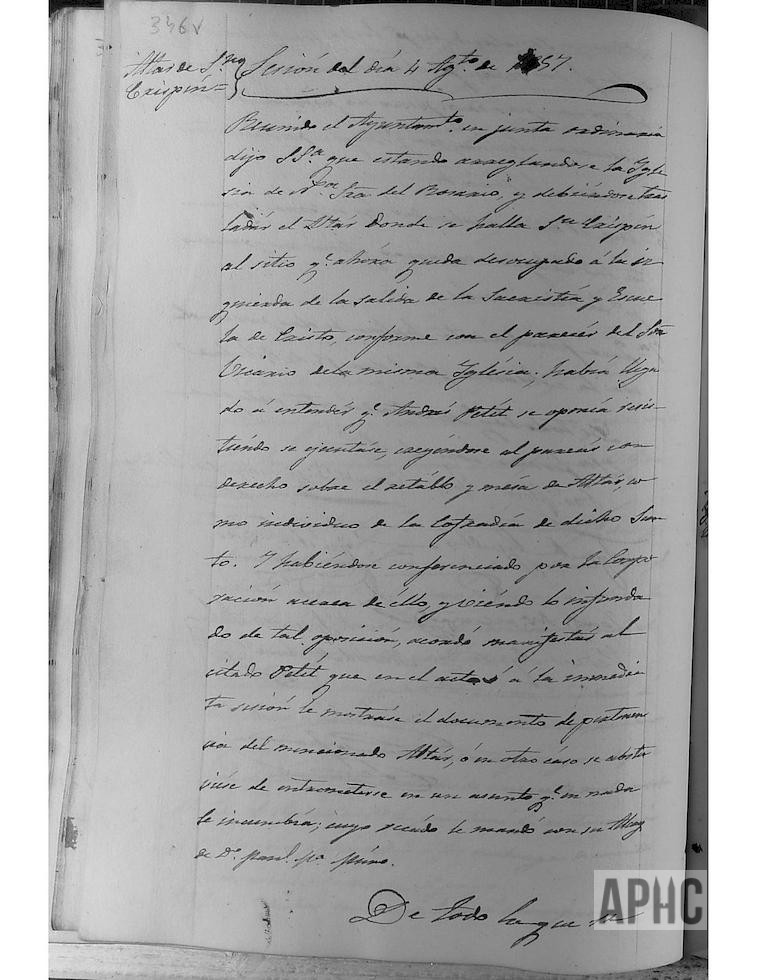 346v
Altar de Sn.
Crispín =
Sesión del día 4 Agto. de 1857.
Reunido el Ayuntamto. en junta ordinaria
dijo SSa. que estando arreglandose la Igle
sia de Nra. Sra. del Rosario, y debiéndose tras
ladár el Altár donde se halla Sn. Crispín
al sitio q.e ahora queda desocupado á la iz
quierda de la salida de la Sacristía y Escue
la de Cristo, conforme con el parecér del Sor.
Vicario de la misma Iglésia; habia llega
do á entendér q.e Andrés Petit se oponia resis
tiéndo se ejecutáse, creyéndose al parecér con
derecho sobre el retáblo y mesa de Altár, co
mo individuo de la Cofradía de dicho San
to. Y habiéndose conferenciado por la Corpo
ración acerca de éllo, y viéndo lo infunda
do de tal oposición, acordó manifestár al
citado Petit que en el acto ó á la inmedia
ta sesión le mostráse el documento de pertenen
cia del mencionado Altár, ó en otro cáso se abstu
viése de entrometerse en un asunto q.e en nada
le incumbía; cuyo recádo le mandó con su Alcay
de Dn.
De todo lo que se
APHC